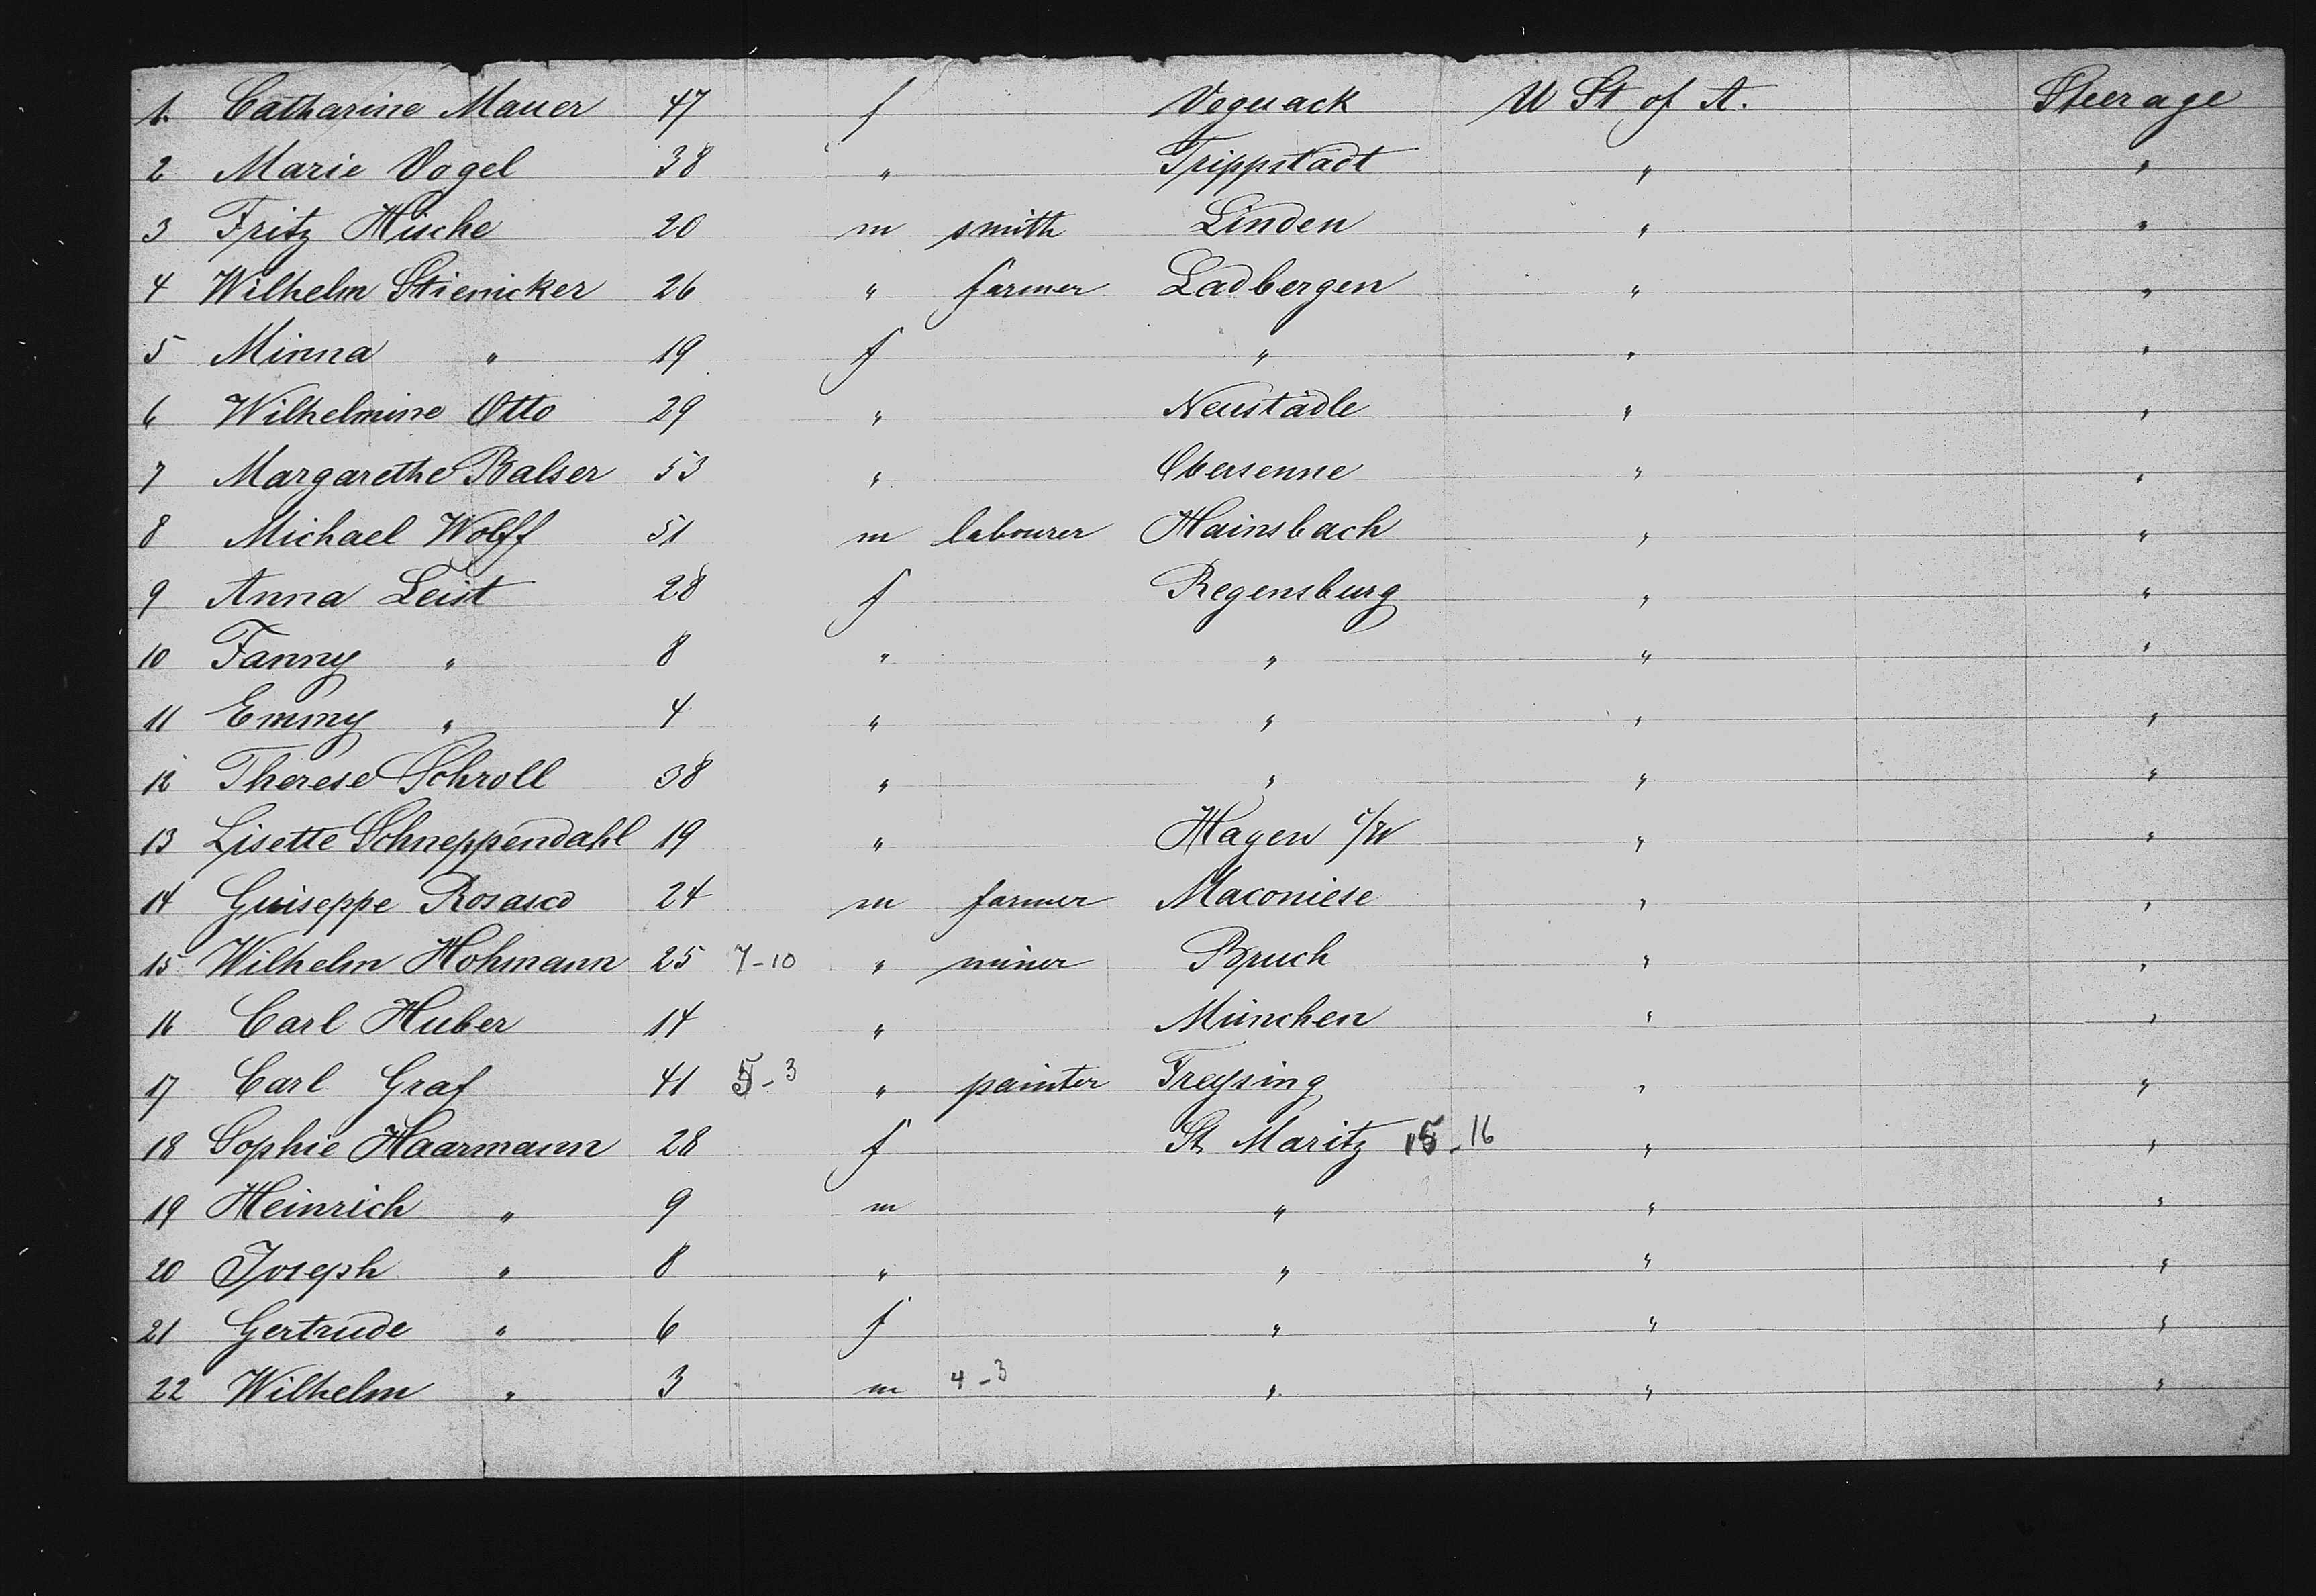 1. Catharine Mauer 47 f Vegesack U St of A. Steerage
2 Marie Vogel 38 " Trippstadt " "
3 Fritz Hische 20 m smith Linden " "
4 Wilhelm Stienicker 26 " farmer Ladbergen " "
5 Minna " 19 f " " "
6 Wilhelmine Otto 29 " Neustädle " "
7 Margarethe Balser 53 " Obersenne " "
8 Michael Wolff 51 m labourer Hainsbach " "
9 Anna Leist 28 f Regensburg " "
10 Fanny " 8 " " " "
11 Emmy " 4 " " " "
12 Therese Schroll 38 " " " "
13 Lisette Schneppendahl 19 " Hagen i/W " "
14 Guiseppe Rosasco 24 m farmer Maconiese " "
15 Wilhelm Hohmann 25 7-10 " miner Bruch " "
16 Carl Huber 14 " München " "
17 Carl Graf 41 5-3 " painter Freysing " "
18 Sophie Haarmann 28 f St. Maritz 15-16 " "
19 Heinrich " 9 m " " "
20 Joseph " 8 " " " "
21 Gertrude " 6 f " " "
22 Wilhelm " 3 m 4-3 " " "